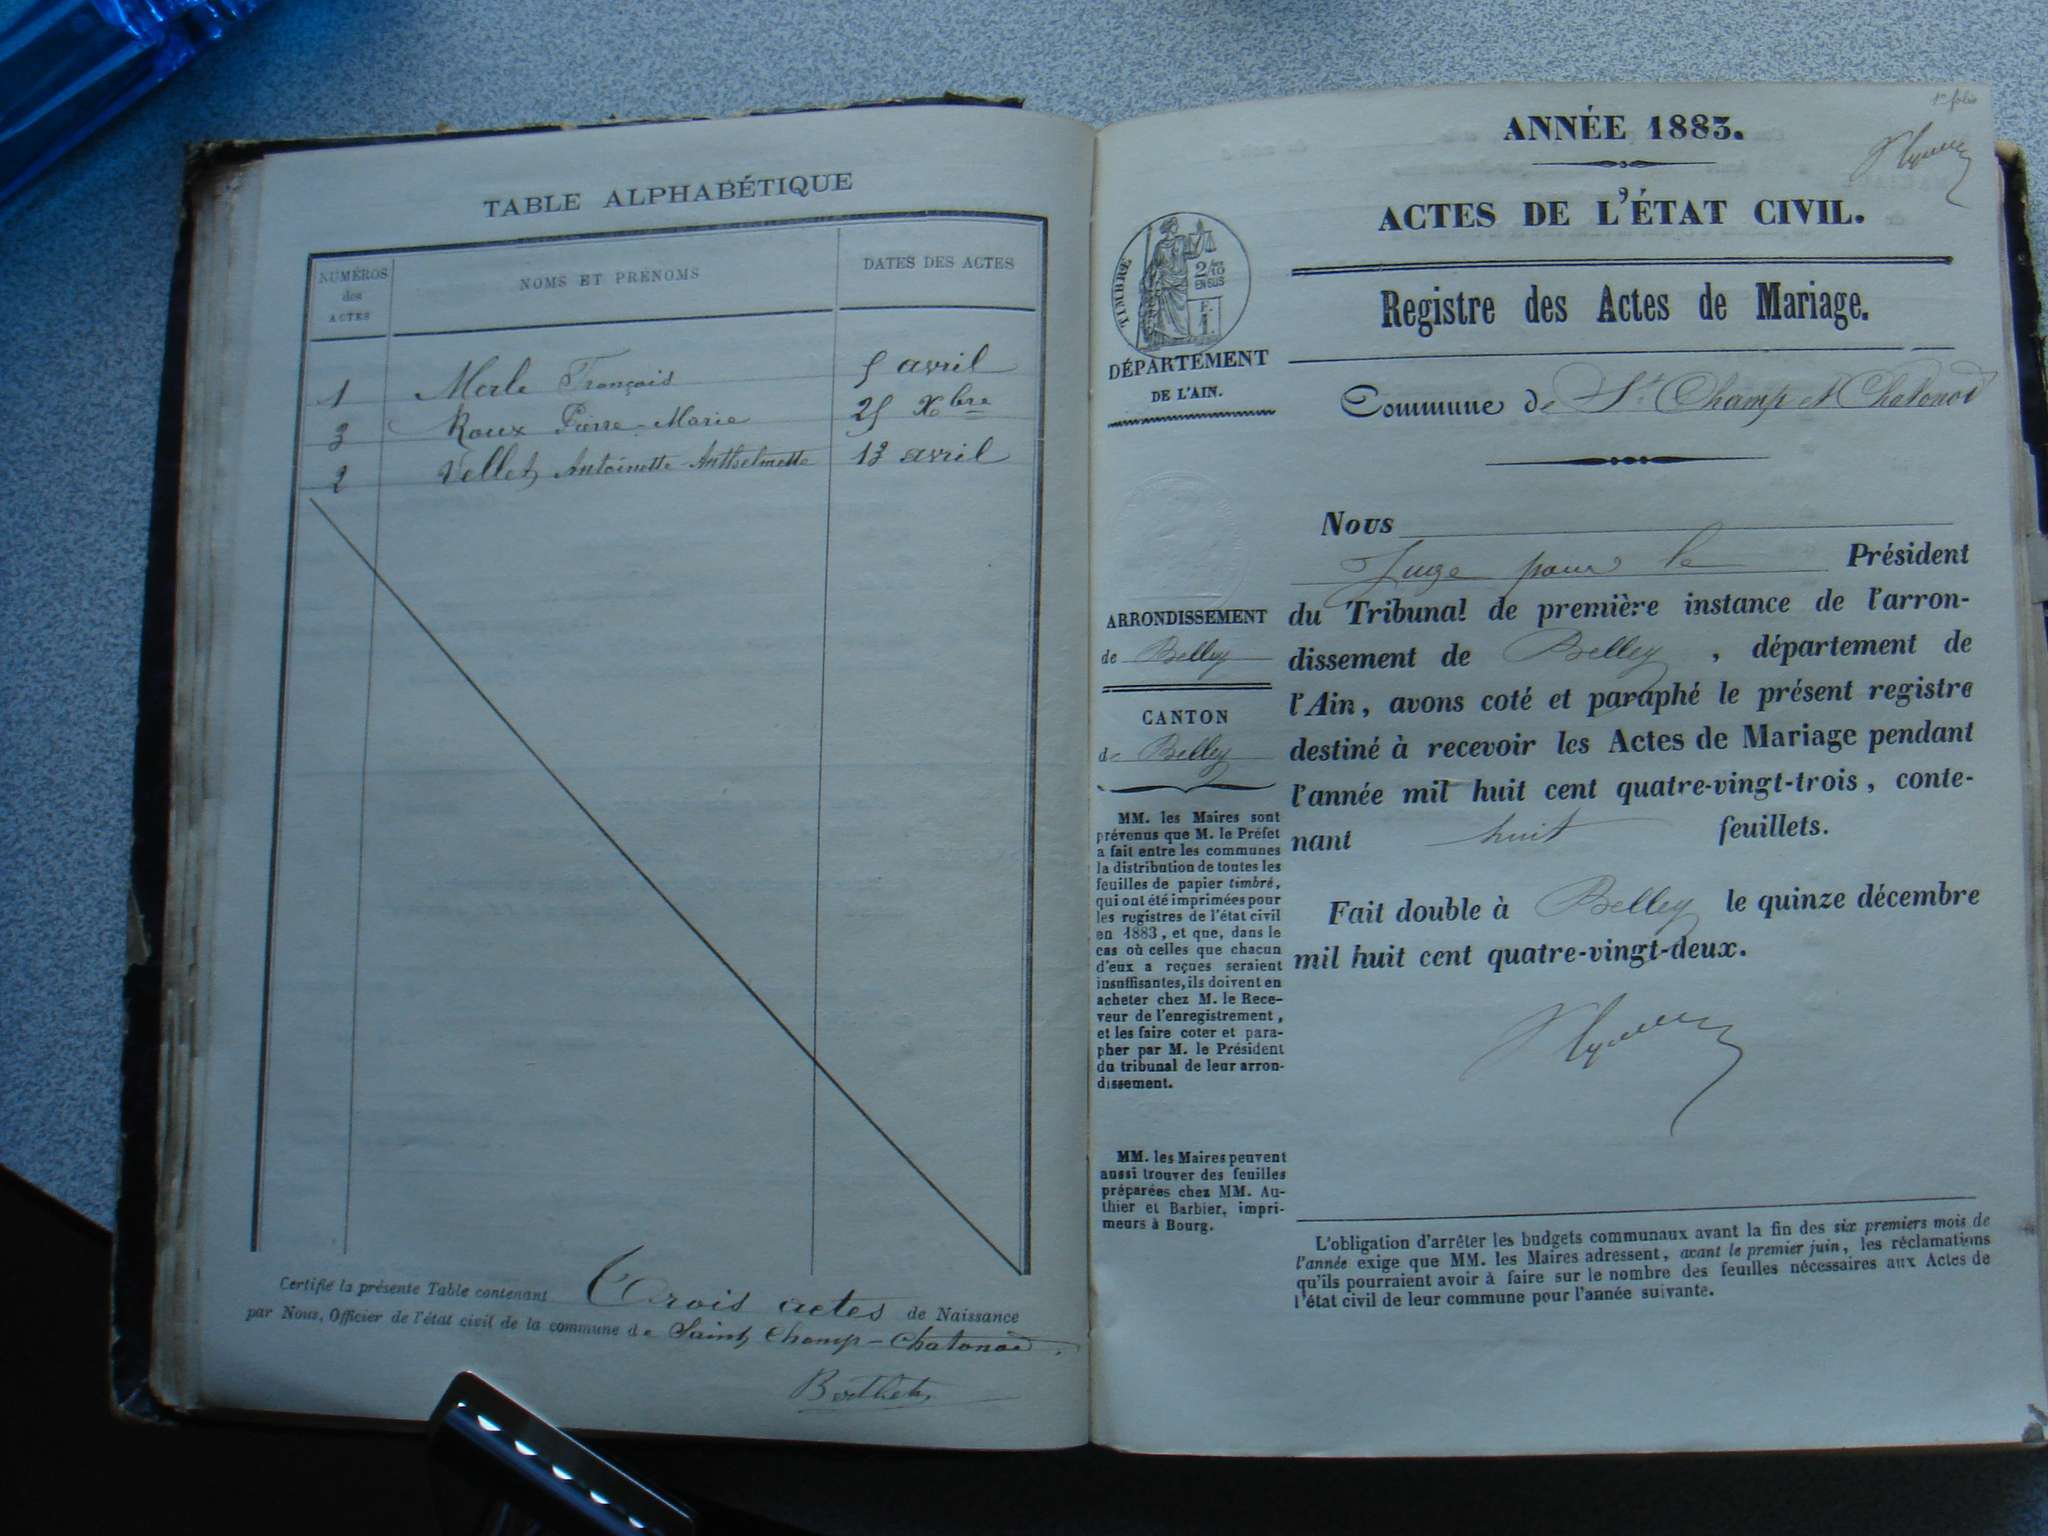 TABLE ALPHABÉTIQUE
NUMÉROS des ACTES
NOMS ET PRÉNOMS
DATES DES ACTES
1 Merle François 5 avril
3 Roux Pierre-Marie 25 Xbre
2 Vellet Antoinette-Anthelmette 13 avril
Certifié la présente Table contenant Trois actes de Naissance
par Nous, Officier de l'état civil de la commune de Saint Champ-Chatonod.
Berthet
1er folio
ANNÉE 1883.
ACTES DE L'ÉTAT CIVIL.
Registre des Actes de Mariage.
Commune de St Champ et Chatonod
TIMBRE
2/10
EN SUS
F.
1.
DÉPARTEMENT
DE L'AIN.
ARRONDISSEMENT
de Belley
CANTON
de Belley
MM. les Maires sont
prévenus que M. le Préfet
a fait entre les communes
la distribution de toutes les
feuilles de papier timbré,
qui ont été imprimées pour
les registres de l'état civil
en 1883, et que, dans le
cas où celles que chacun
d'eux a reçues seraient
insuffisantes, ils doivent en
acheter chez M. le Rece-
veur de l'enregistrement,
et les faire coter et para-
pher par M. le Président
du tribunal de leur arron-
dissement.
MM. les Maires peuvent
aussi trouver des feuilles
préparées chez MM. Au-
thier et Barbier, impri-
meurs à Bourg.
Nous
Juge pour le Président
du Tribunal de première instance de l'arron-
dissement de Belley, département de
l'Ain, avons coté et paraphé le présent registre
destiné à recevoir les Actes de Mariage pendant
l'année mil huit cent quatre-vingt-trois, conte-
nant huit feuillets.
Fait double à Belley le quinze décembre
mil huit cent quatre-vingt-deux.
L'obligation d'arrêter les budgets communaux avant la fin des six premiers mois de
l'année exige que MM. les Maires adressent, avant le premier juin, les réclamations
qu'ils pourraient avoir à faire sur le nombre des feuilles nécessaires aux Actes de
l'état civil de leur commune pour l'année suivante.